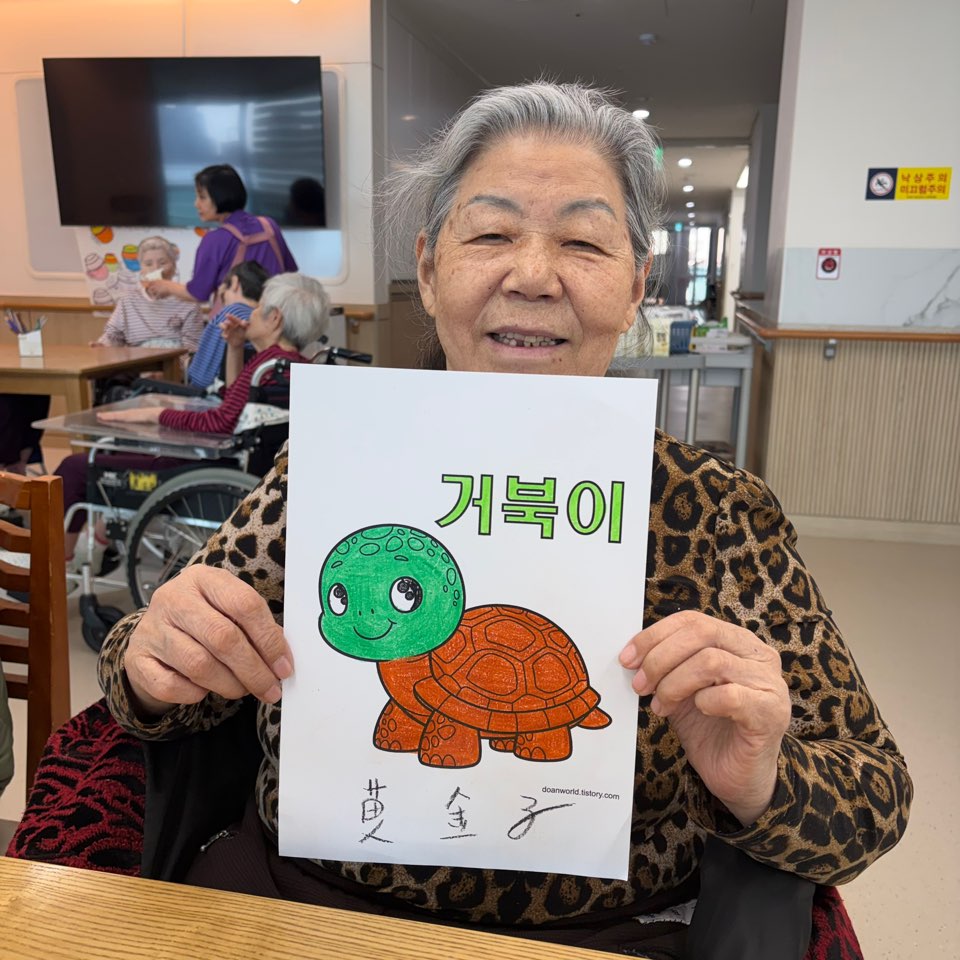 낙상주의
미끄럼주의
거북이
doanworld.tistory.com
黄金子